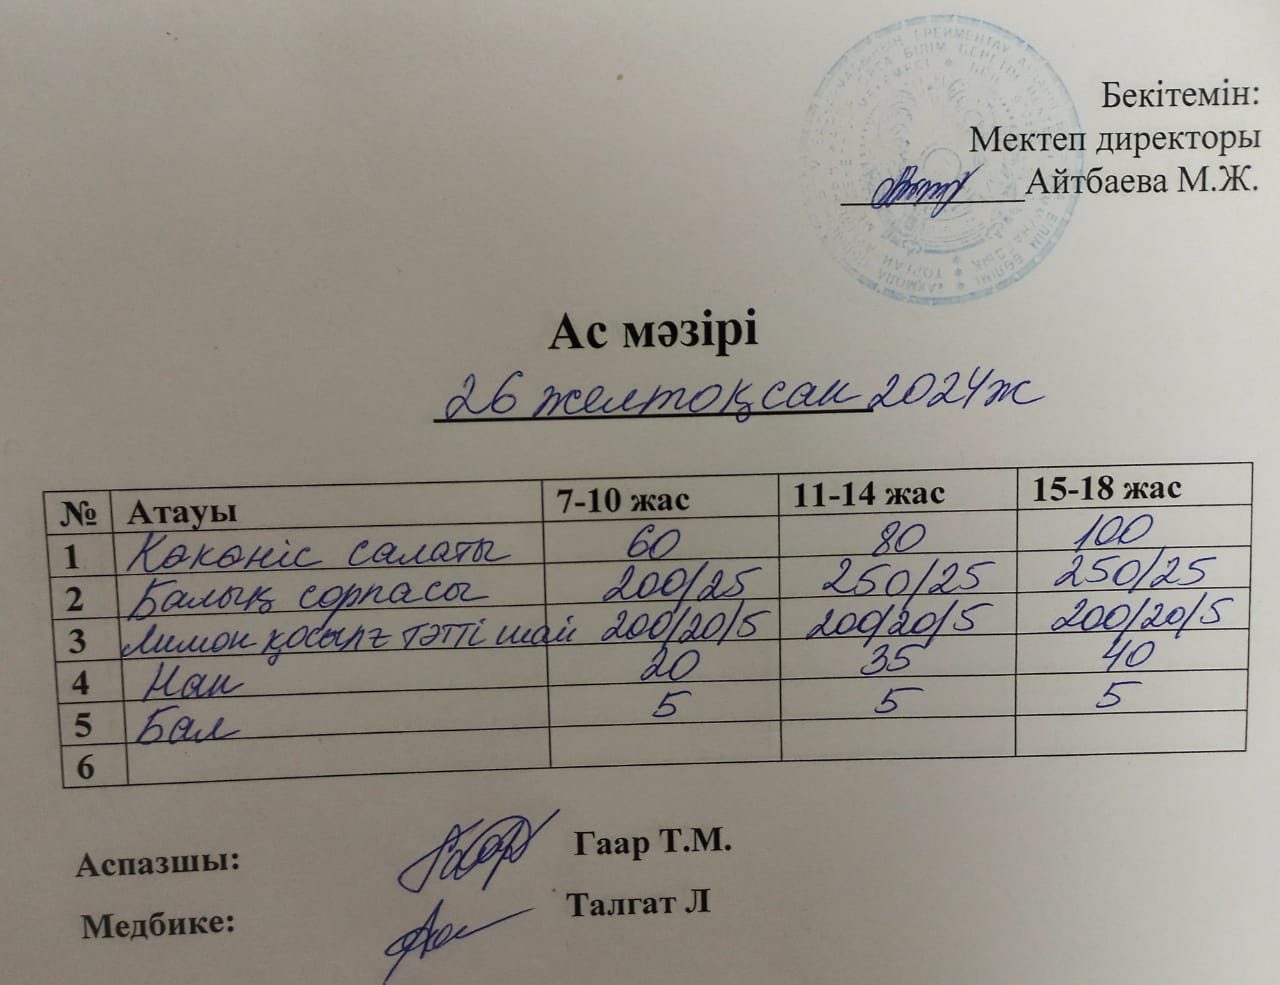 Бекітемін:
Мектеп директоры
Айтбаева М.Ж.
Ас мәзірі
26 желтоқсан 2024ж
№ Атауы 7-10 жас 11-14 жас 15-18 жас
1 Көкөніс салаты 60 80 100
2 Балық сорпасы 200/25 250/25 250/25
3 Лимон қосылғ тәтті шай 200/20/5 200/20/5 200/20/5
4 Нан 20 35 40
5 Бал 5 5 5
6
Аспазшы: Гаар Т.М.
Медбике: Талгат Л